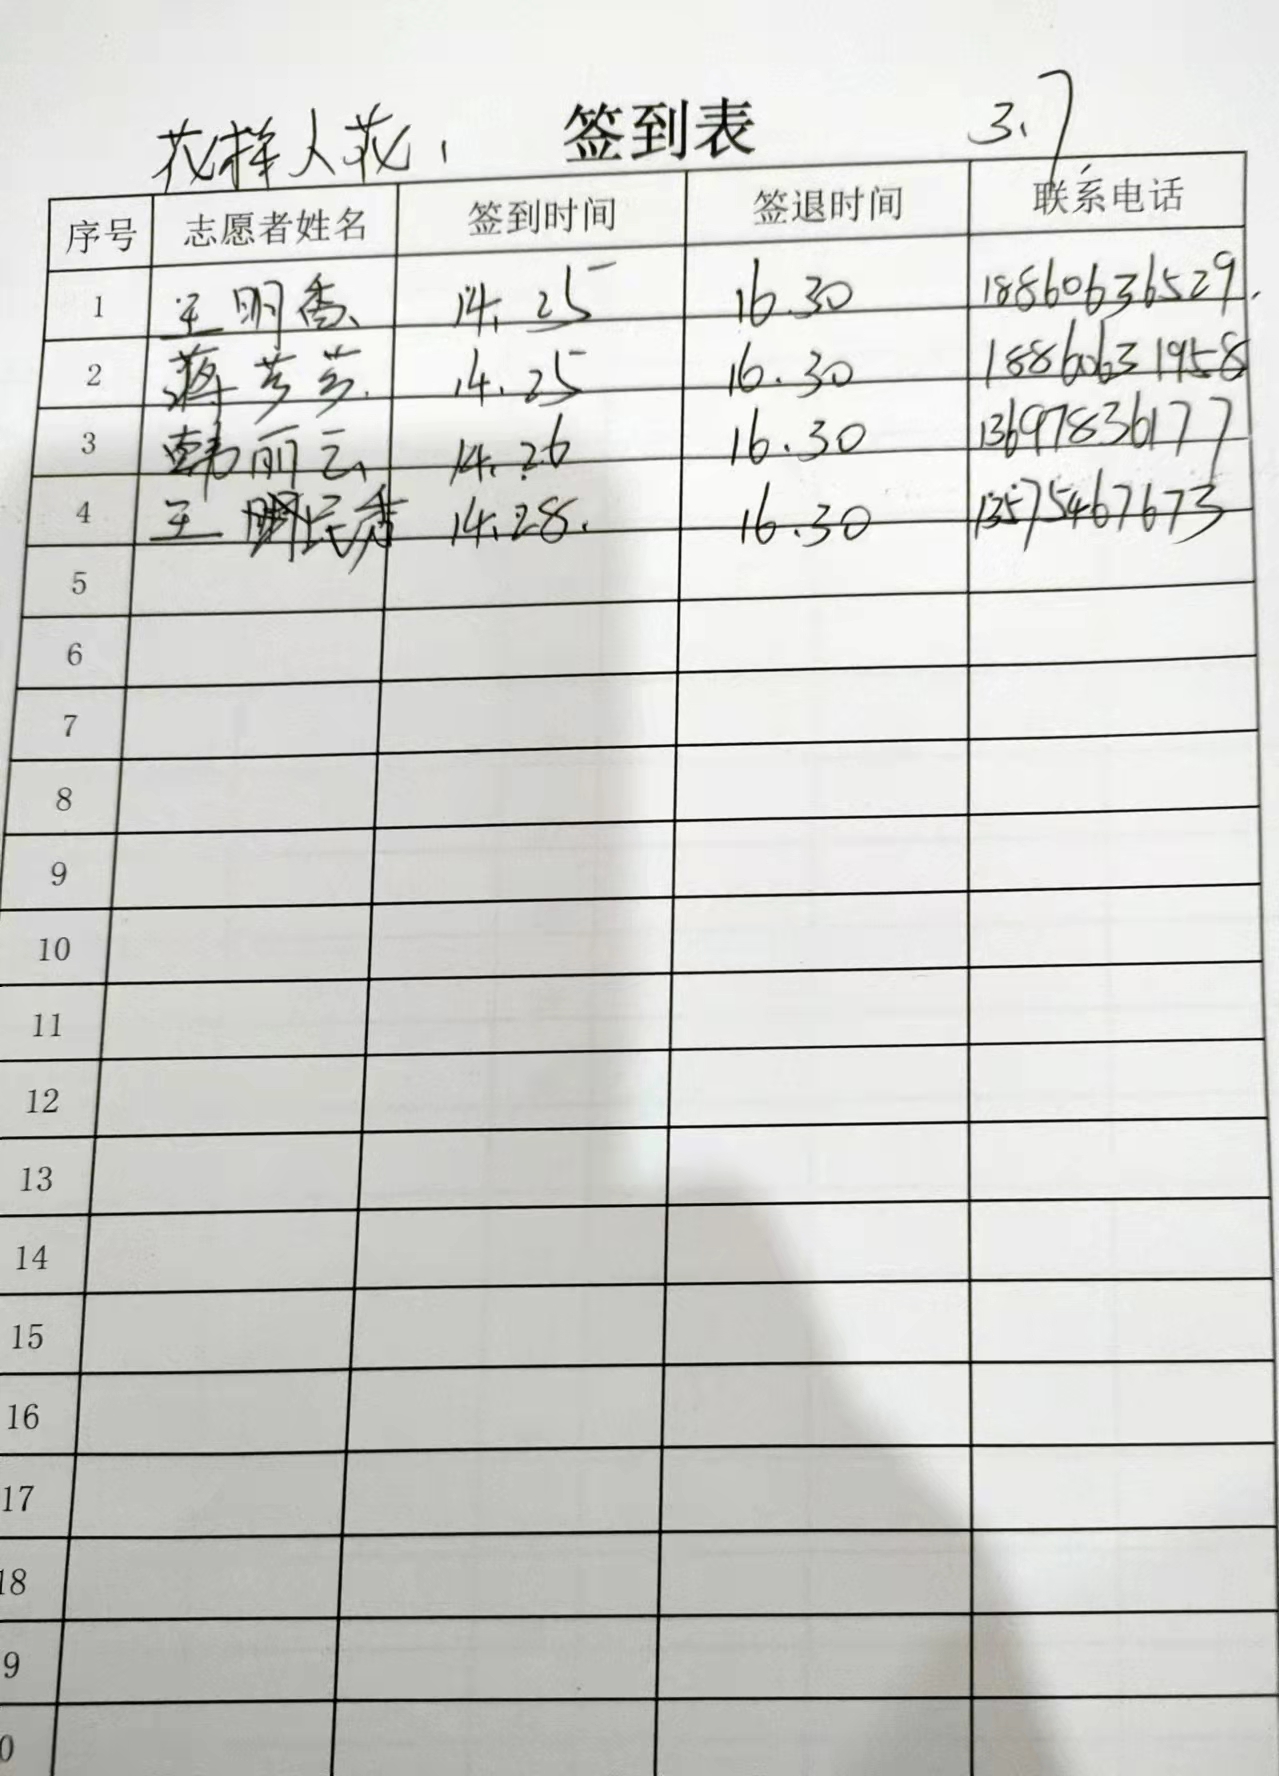 花样人花, 签到表 3.7
序号 志愿者姓名 签到时间 签退时间 联系电话
1 王明香 14.25 16.30 18860636529
2 蒋芳芳 14.25 16.30 18860631958
3 韩丽云 14.26 16.30 13697836177
4 王民秀 14.28. 16.30 13575467673
5
6
7
8
9
10
11
12
13
14
15
16
17
18
9
0